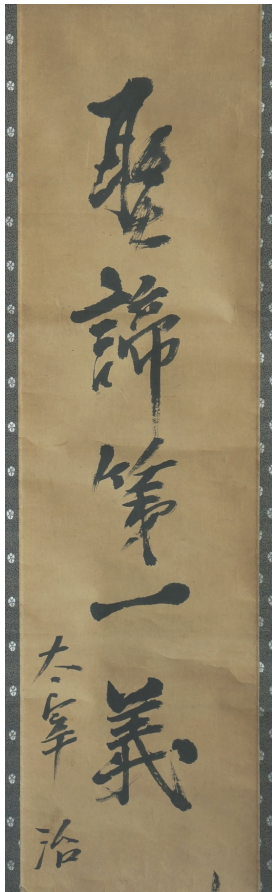 聖諦第一義
太宰治